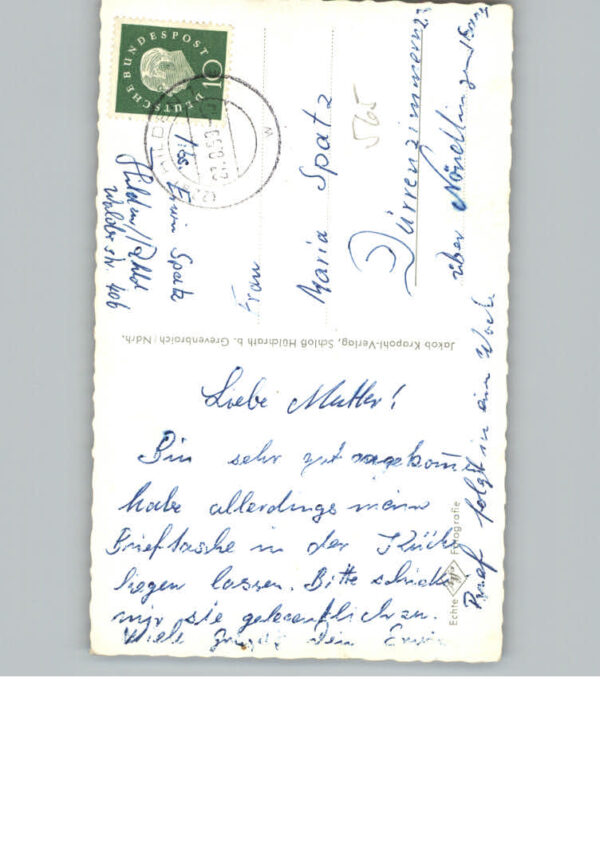 Liebe Mutter!
Bin sehr gut angekom̅
habe allerdings meine
Brieftasche in der Küche
liegen lassen. Bitte schicke
mir sie gelegentlich zu.
Viele Grüße dein Erwin
Brief folgt in ein Woche
Frau
Maria Spatz
Dürrenzimmern 23
über Nördlingen
Abs. Erwin Spatz
Hilden/Rhld
Walder str. 406
565
DEUTSCHE BUNDESPOST
10
Echte Fotografie
Jakob Krapohl-Verlag, Schloß Hülchrath b. Grevenbroich/Ndrh.